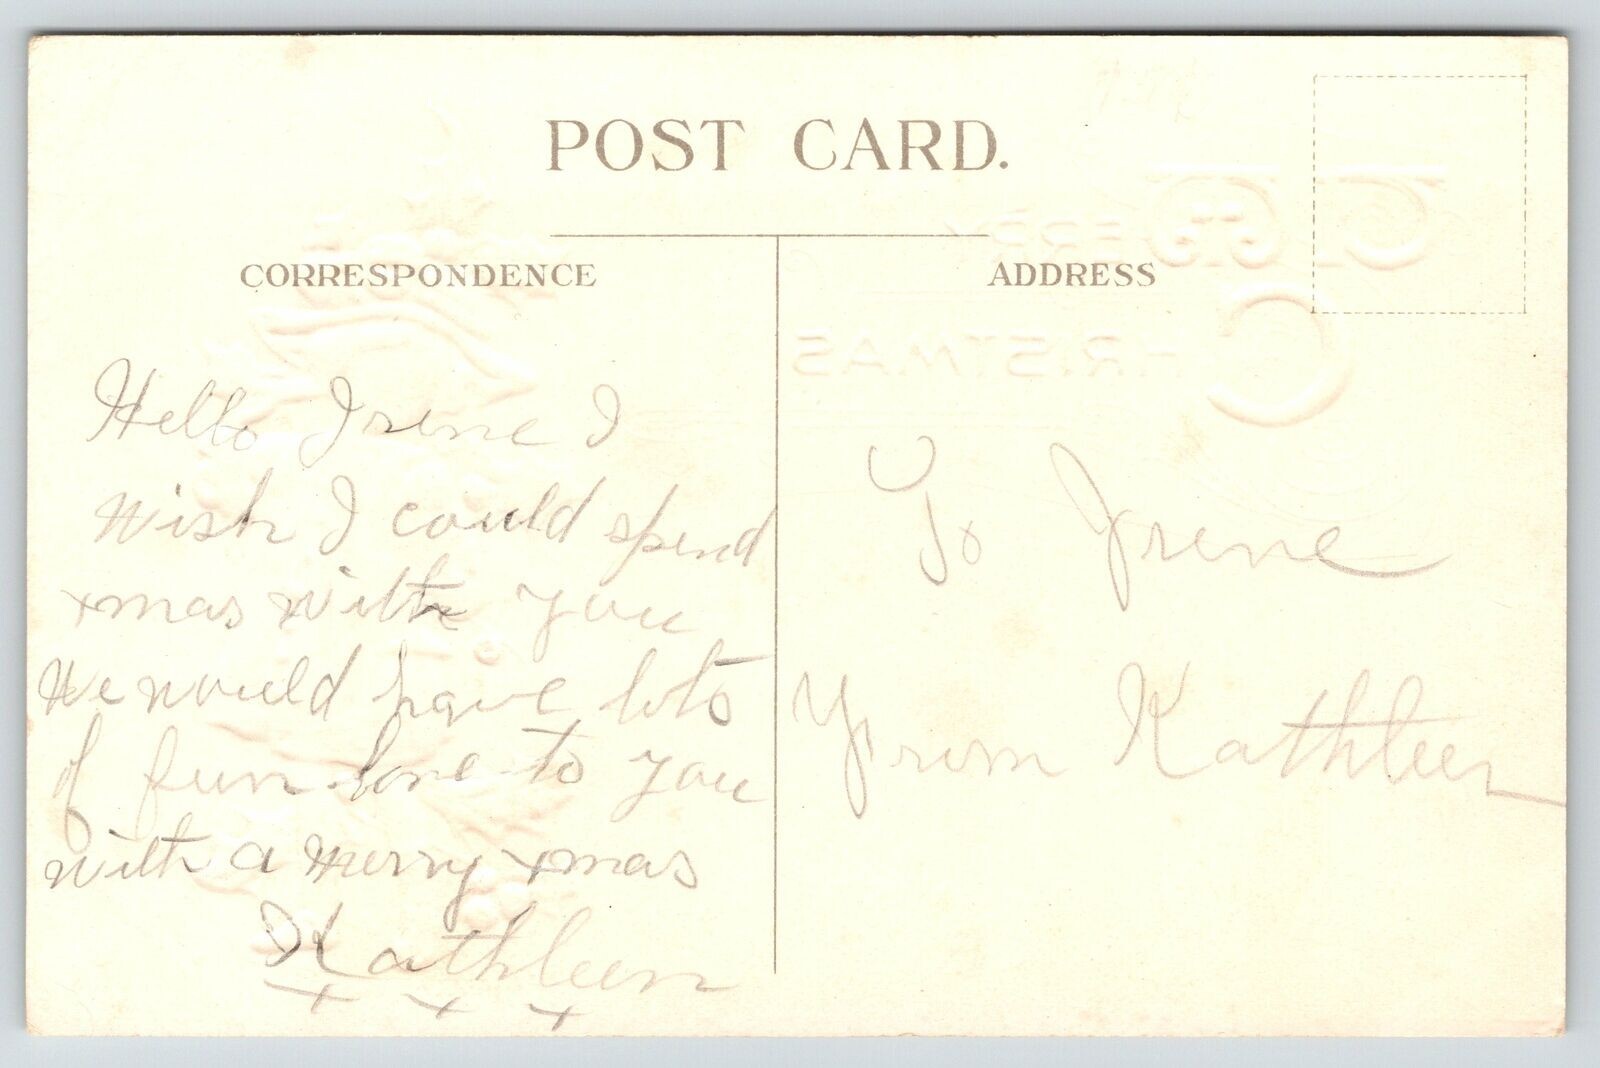 POST CARD.
CORRESPONDENCE
ADDRESS
Hello Irene I
wish I could spend
xmas with you
We would have lots
of fun love to you
with a merry xmas
Kathleen
x x x
To Irene
From Kathleen
MERRY
CHRISTMAS